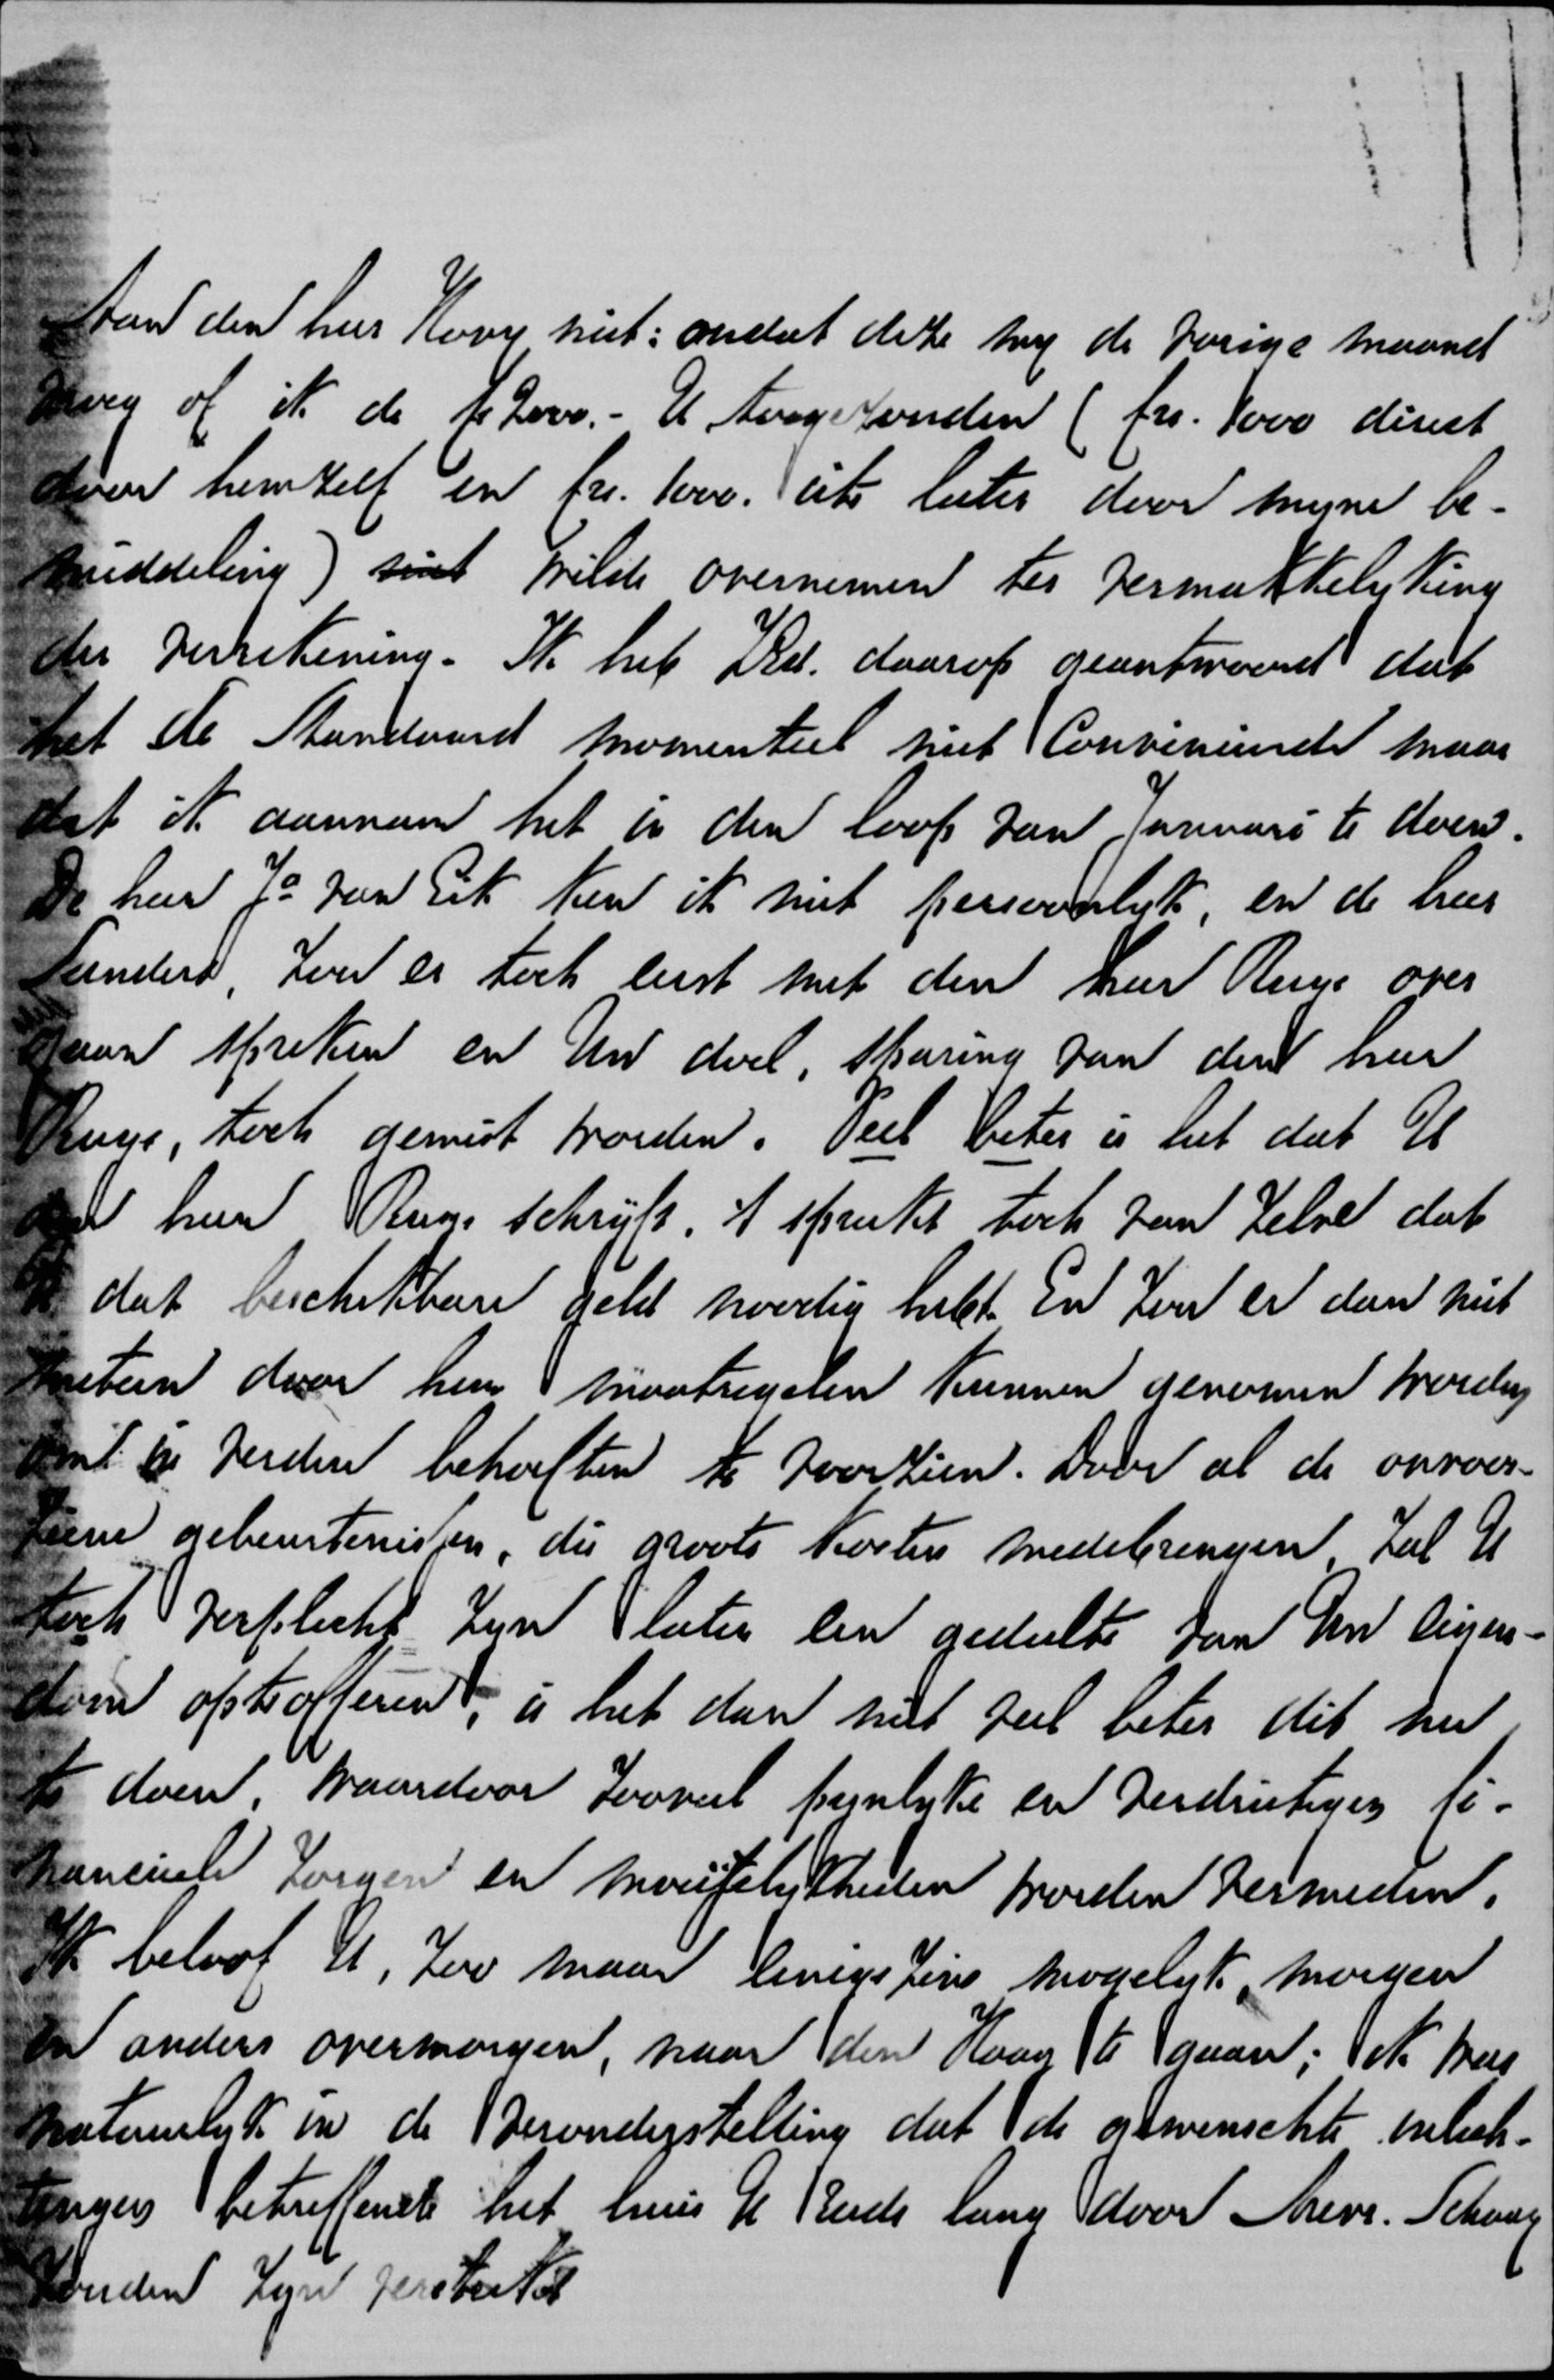 Aan den heer Hovy niet: omdat deze my de vorige maand
vroeg of ik de fr 2000.- U toegezonden (frs. 1000 direct
door hemzelf en frs. 1000. iets later door myne be-
middeling) niet wilde overnemen ter vermakkelyking
der verrekening. Ik heb ZEd. daarop geantwoord dat
het de Standaard momenteel niet convenieerde maar
dat ik aannam het in den loop van Januari te doen.
De heer Jo van Eik ken ik niet persoonlyk, en de heer
Sanders, zou er toch eerst met den heer Ruys over
gaan spreken en Uw doel, sparing van den heer
Ruys, toch gemist worden. Veel beter is het dat U
den heer Ruys schryft. 't spreekt toch van zelve dat
U dat beschikbare geld noodig hebt. En zou er dan niet
meteen door hem maatregelen kunnen genomen worden
om in verdere behoeften te voorzien. Door al de onvoor-
ziene gebeurtenissen, die groote kosten medebrengen, zal U
toch verplicht zyn later een gedeelte van Uw eigen-
dom opteofferen, is het dan niet veel beter dit nu
te doen, waardoor zooveel pynlyke en verdrietigen fi-
nancieele zorgen en moeijelykheden worden vermeden.
Ik beloof U, zoo maar eenigszins mogelyk, morgen
en anders overmorgen, naar den Haag te gaan; ik was
natuurlyk in de veronderstelling dat de gewenschte inlich-
tingen betreffende het huis U reeds lang door Mevr. Schaay
zouden zyn verstrekt